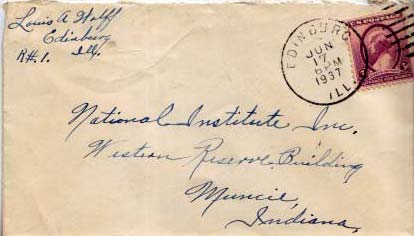 Louis A Wolff
Edinburg
Ill.
R#. 1.
EDINBURG
JUN
17
6 PM
1937
ILL.
U.S. POSTAGE
National Institute Inc.
Western Reserve Building
Muncie,
Indiana,